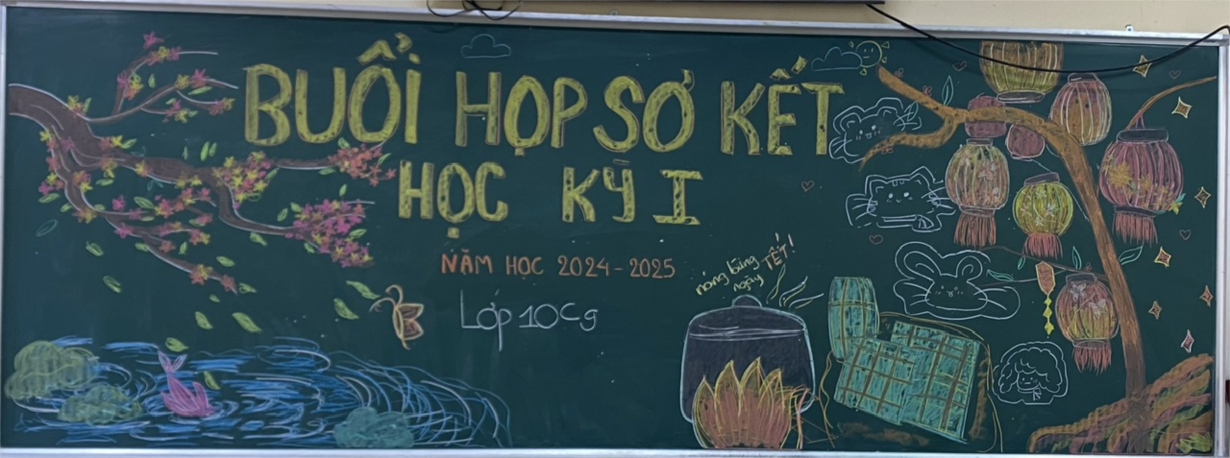 BUỔI HỌP SƠ KẾT
HỌC KỲ I
NĂM HỌC 2024-2025
Lớp 10C9
nóng bừng
ngày TẾT!